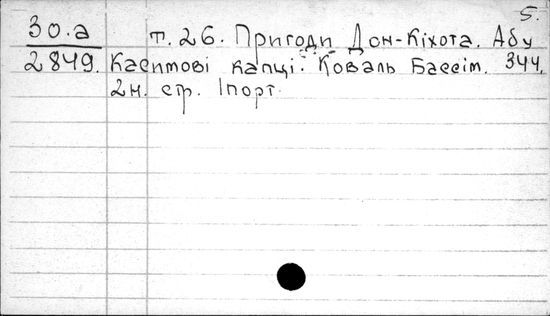 5.
30.а т. 26. Пригоди Дон-Кіхота. Абу
2849. Касимові капці. Коваль Бассім. 344,
2н. стр. 1порт.